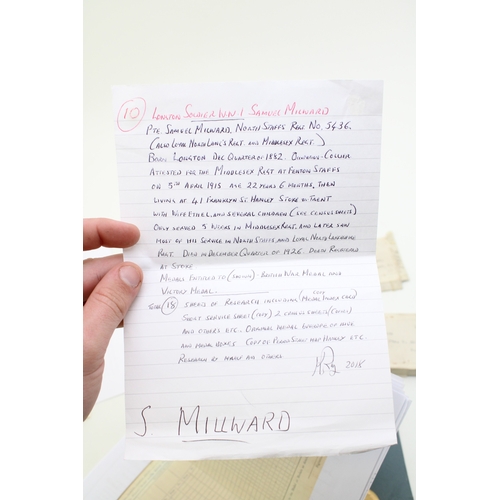 10 LONGTON SOLDIER W.W.1 SAMUEL MILWARD
PTE. SAMUEL MILWARD, NORTH STAFFS REGT NO, 5436,
(ALSO LOYAL NORTH LANC'S REGT. AND MIDDLESEX REGT.)
BORN LONGTON DEC QUARTER OF 1882. COLLIER
ATTESTED FOR THE MIDDLESEX REGT AT FENTON STAFFS
ON 5TH APRIL 1915 AGE 22 YEARS 6 MONTHS, THEN
LIVING AT 41 FRANKLYN ST. HANLEY STOKE ON TRENT
WITH WIFE ETHEL, AND SEVERAL CHILDREN (SEE CENSUS SHEETS)
ONLY SERVED 5 WEEKS IN MIDDLESEX REGT, AND LATER SAW
MOST OF HIS SERVICE IN NORTH STAFFS, AND LOYAL NORTH LANCASHIRE
REGT. DIED IN DECEMBER QUARTER OF 1926. DEATH REGISTERED
AT STOKE
MEDALS ENTITLED TO BRITISH WAR MEDAL AND
VICTORY MEDAL.
TOTAL (18) SHEETS OF RESEARCH INCLUDING (MEDAL INDEX CARD COPY)
SHORT SERVICE SHEET (COPY) 2 CENSUS SHEETS (COPIES)
AND OTHERS ETC. ORIGINAL MEDAL
AND MEDAL BOXES. COPY OF HANLEY ETC.
RESEARCH BY MANY AN OTHERS.
2015
S MILLWARD